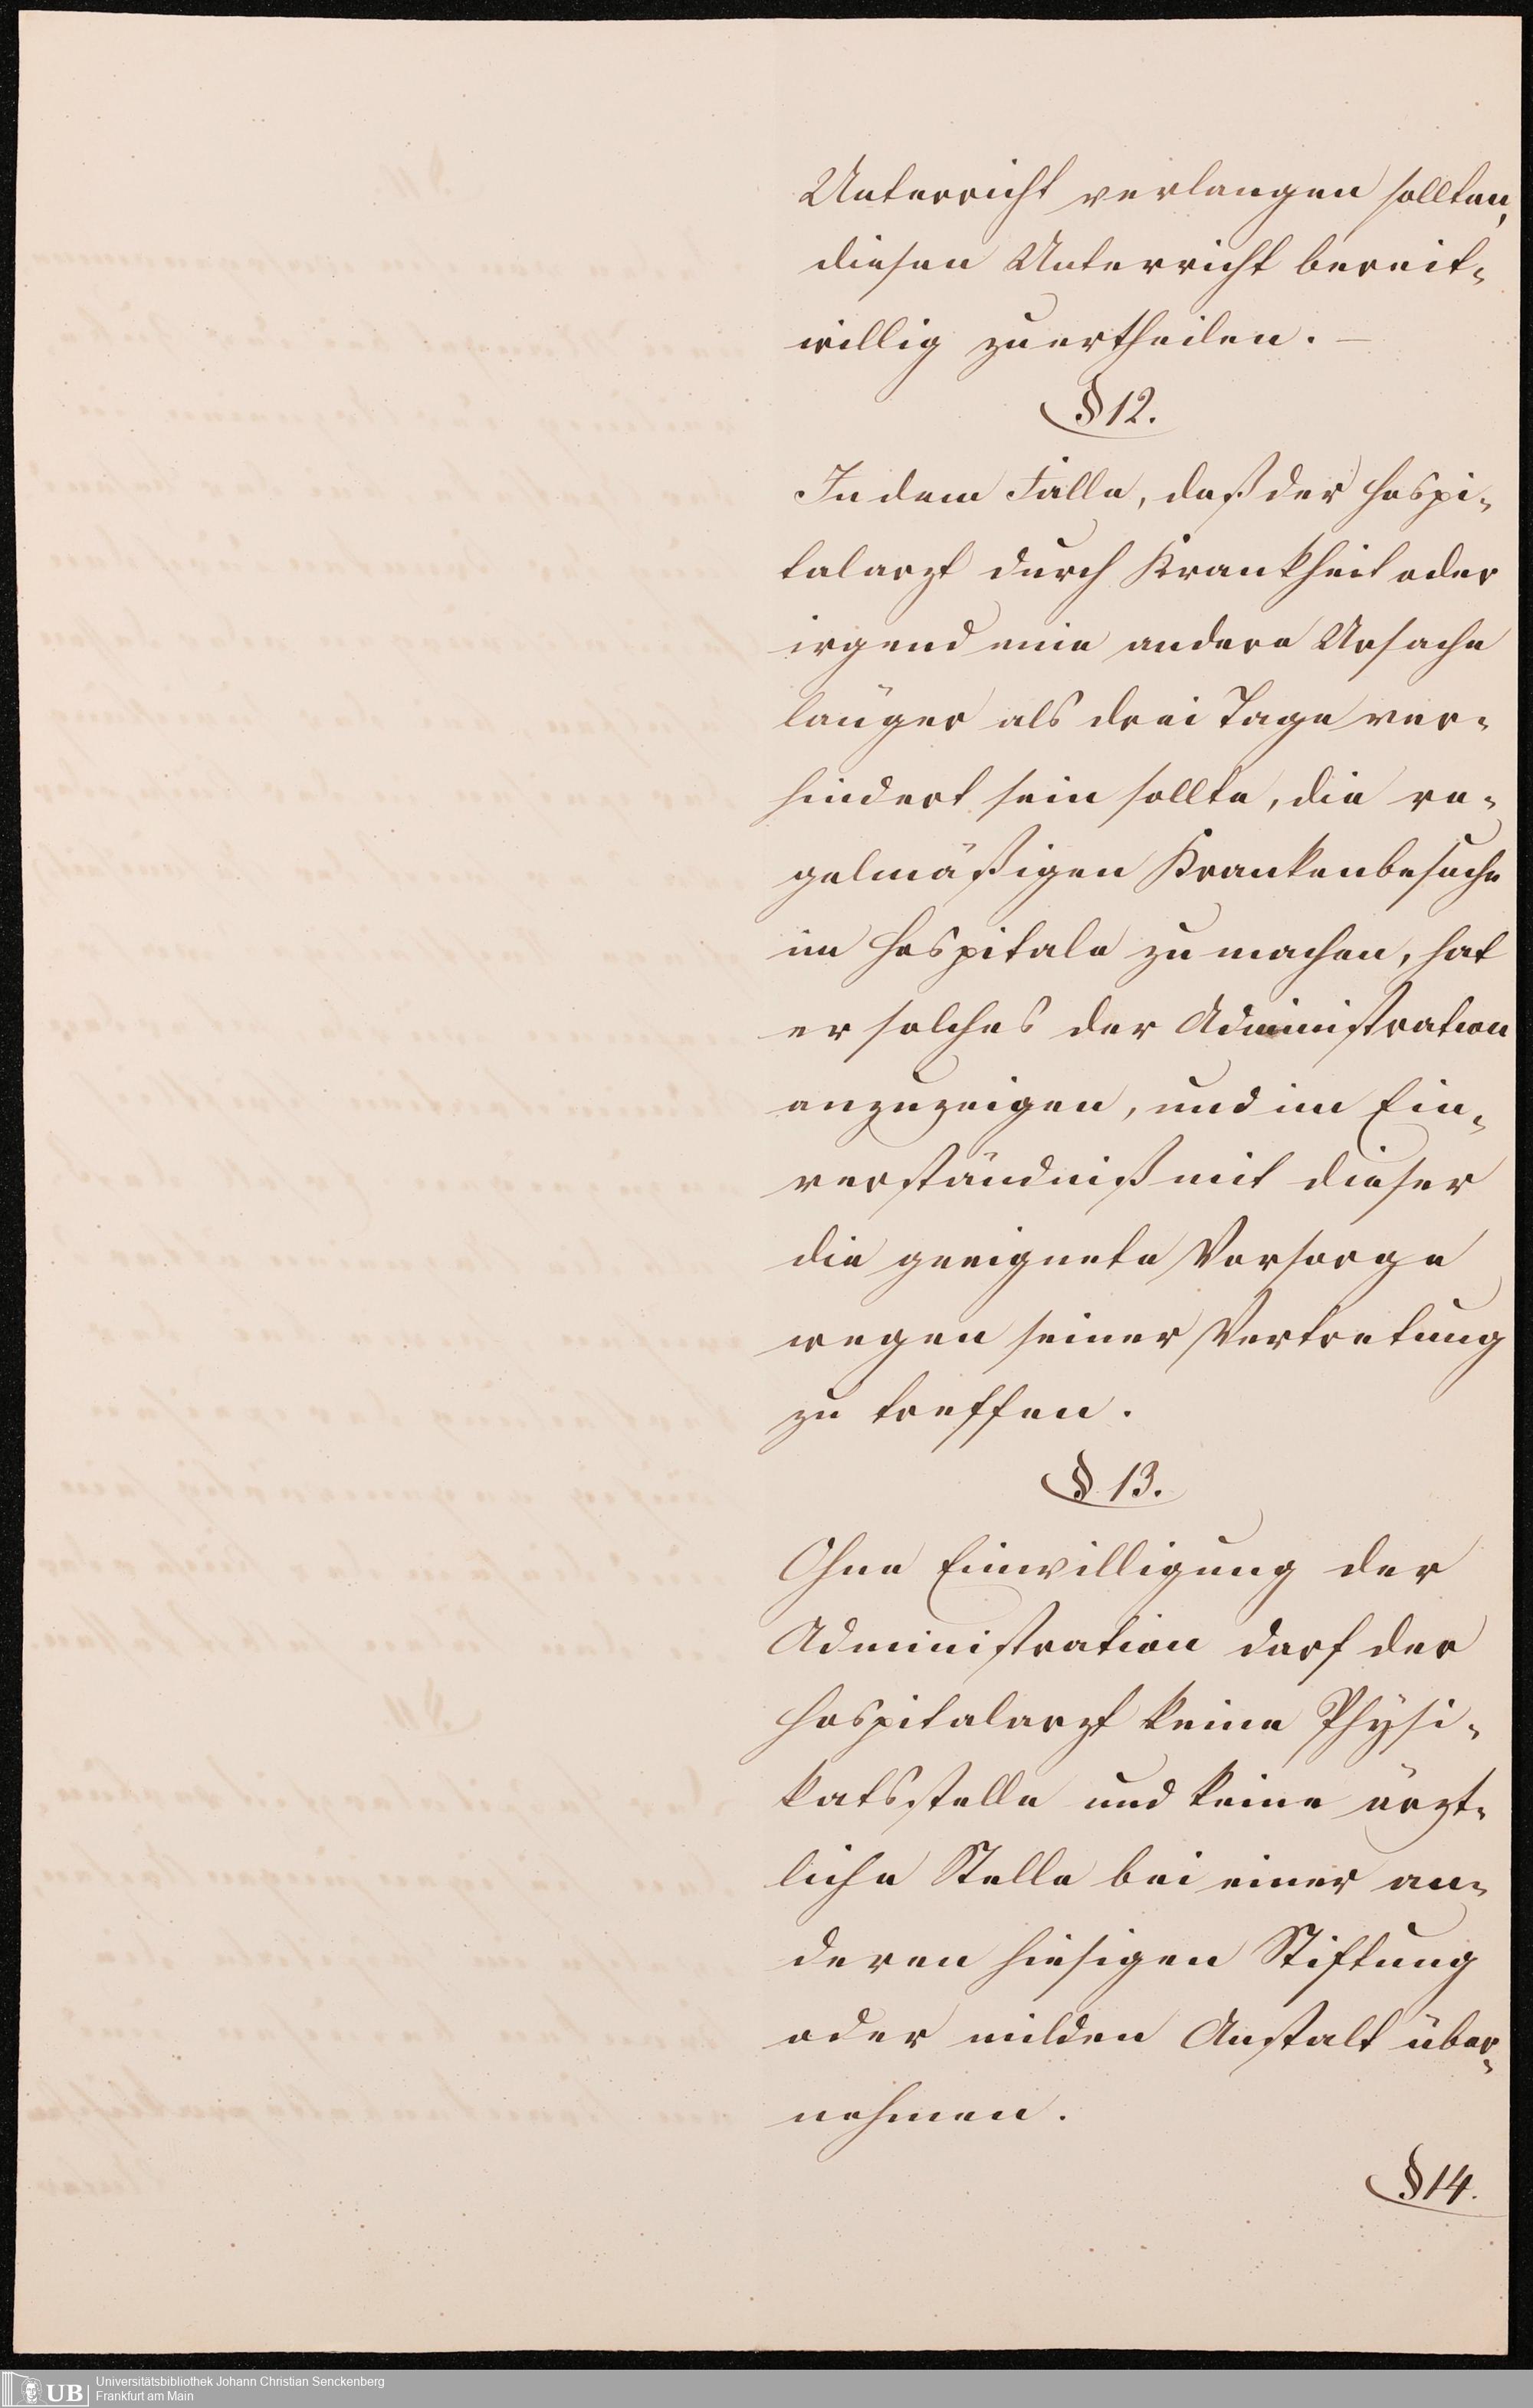 Unterricht verlangen sollten,
diesen Unterricht bereit-
willig zu ertheilen. —
§ 12.
In dem Falle, daß der Hospi-
talarzt durch Krankheit oder
irgend eine andere Ursache
länger als drei Tage ver-
hindert sein sollte, die re-
gelmäßigen Krankenbesuche
im Hospitale zu machen, hat
er solches der Administration
anzuzeigen, und im Ein-
verständniß mit dieser
die geeignete Vorsorge
wegen seiner Vertretung
zu treffen.
§ 13.
Ohne Einwilligung der
Administration darf der
Hospitalarzt keine Physi-
katsstelle und keine ärzt-
liche Stelle bei einer an-
deren hiesigen Stiftung
oder milden Anstalt über-
nehmen.
§ 14.
UB
Universitätsbibliothek Johann Christian Senckenberg
Frankfurt am Main